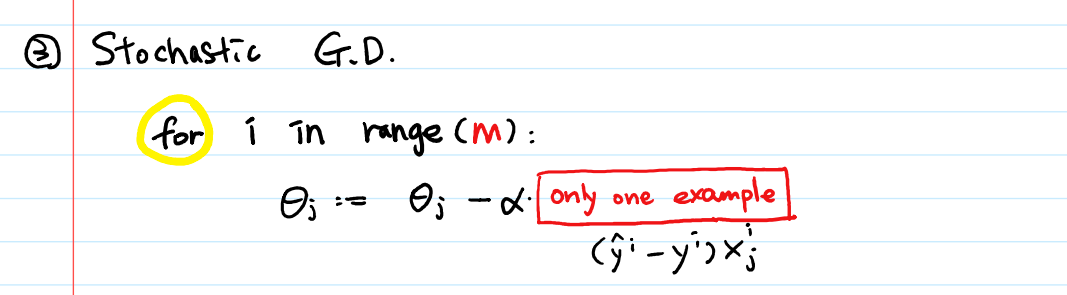 ③ Stochastic G.D.
for i in range (m):
θⱼ := θⱼ - α· only one example
(ŷⁱ - yⁱ) xⱼⁱ